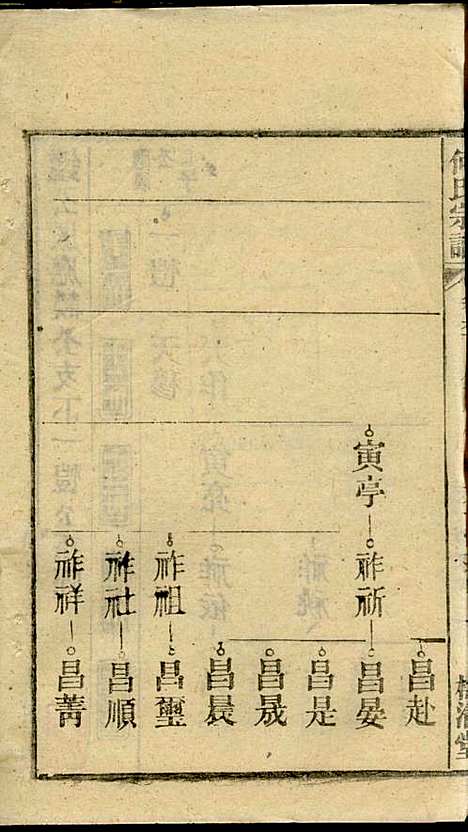 氏宗譜
寅亭
祚祈
昌赴
昌晏
昌是
昌晟
昌晨
祚祖
昌璽
祚社
昌順
祚祥
昌菁
堂